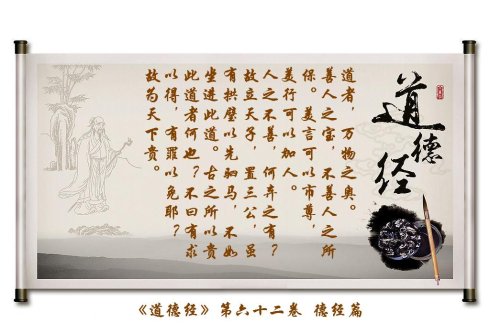 道德经
道者，万物之奥。
善人之宝，不善人之所
保。美言可以市尊，
美行可以加人。
人之不善，何弃之有？
故立天子，置三公，虽
有拱璧以先驷马，不如
坐进此道。古之所以贵
此道者何也？不曰有求
以得，有罪以免耶？
故为天下贵。
《道德经》第六十二卷 德经篇